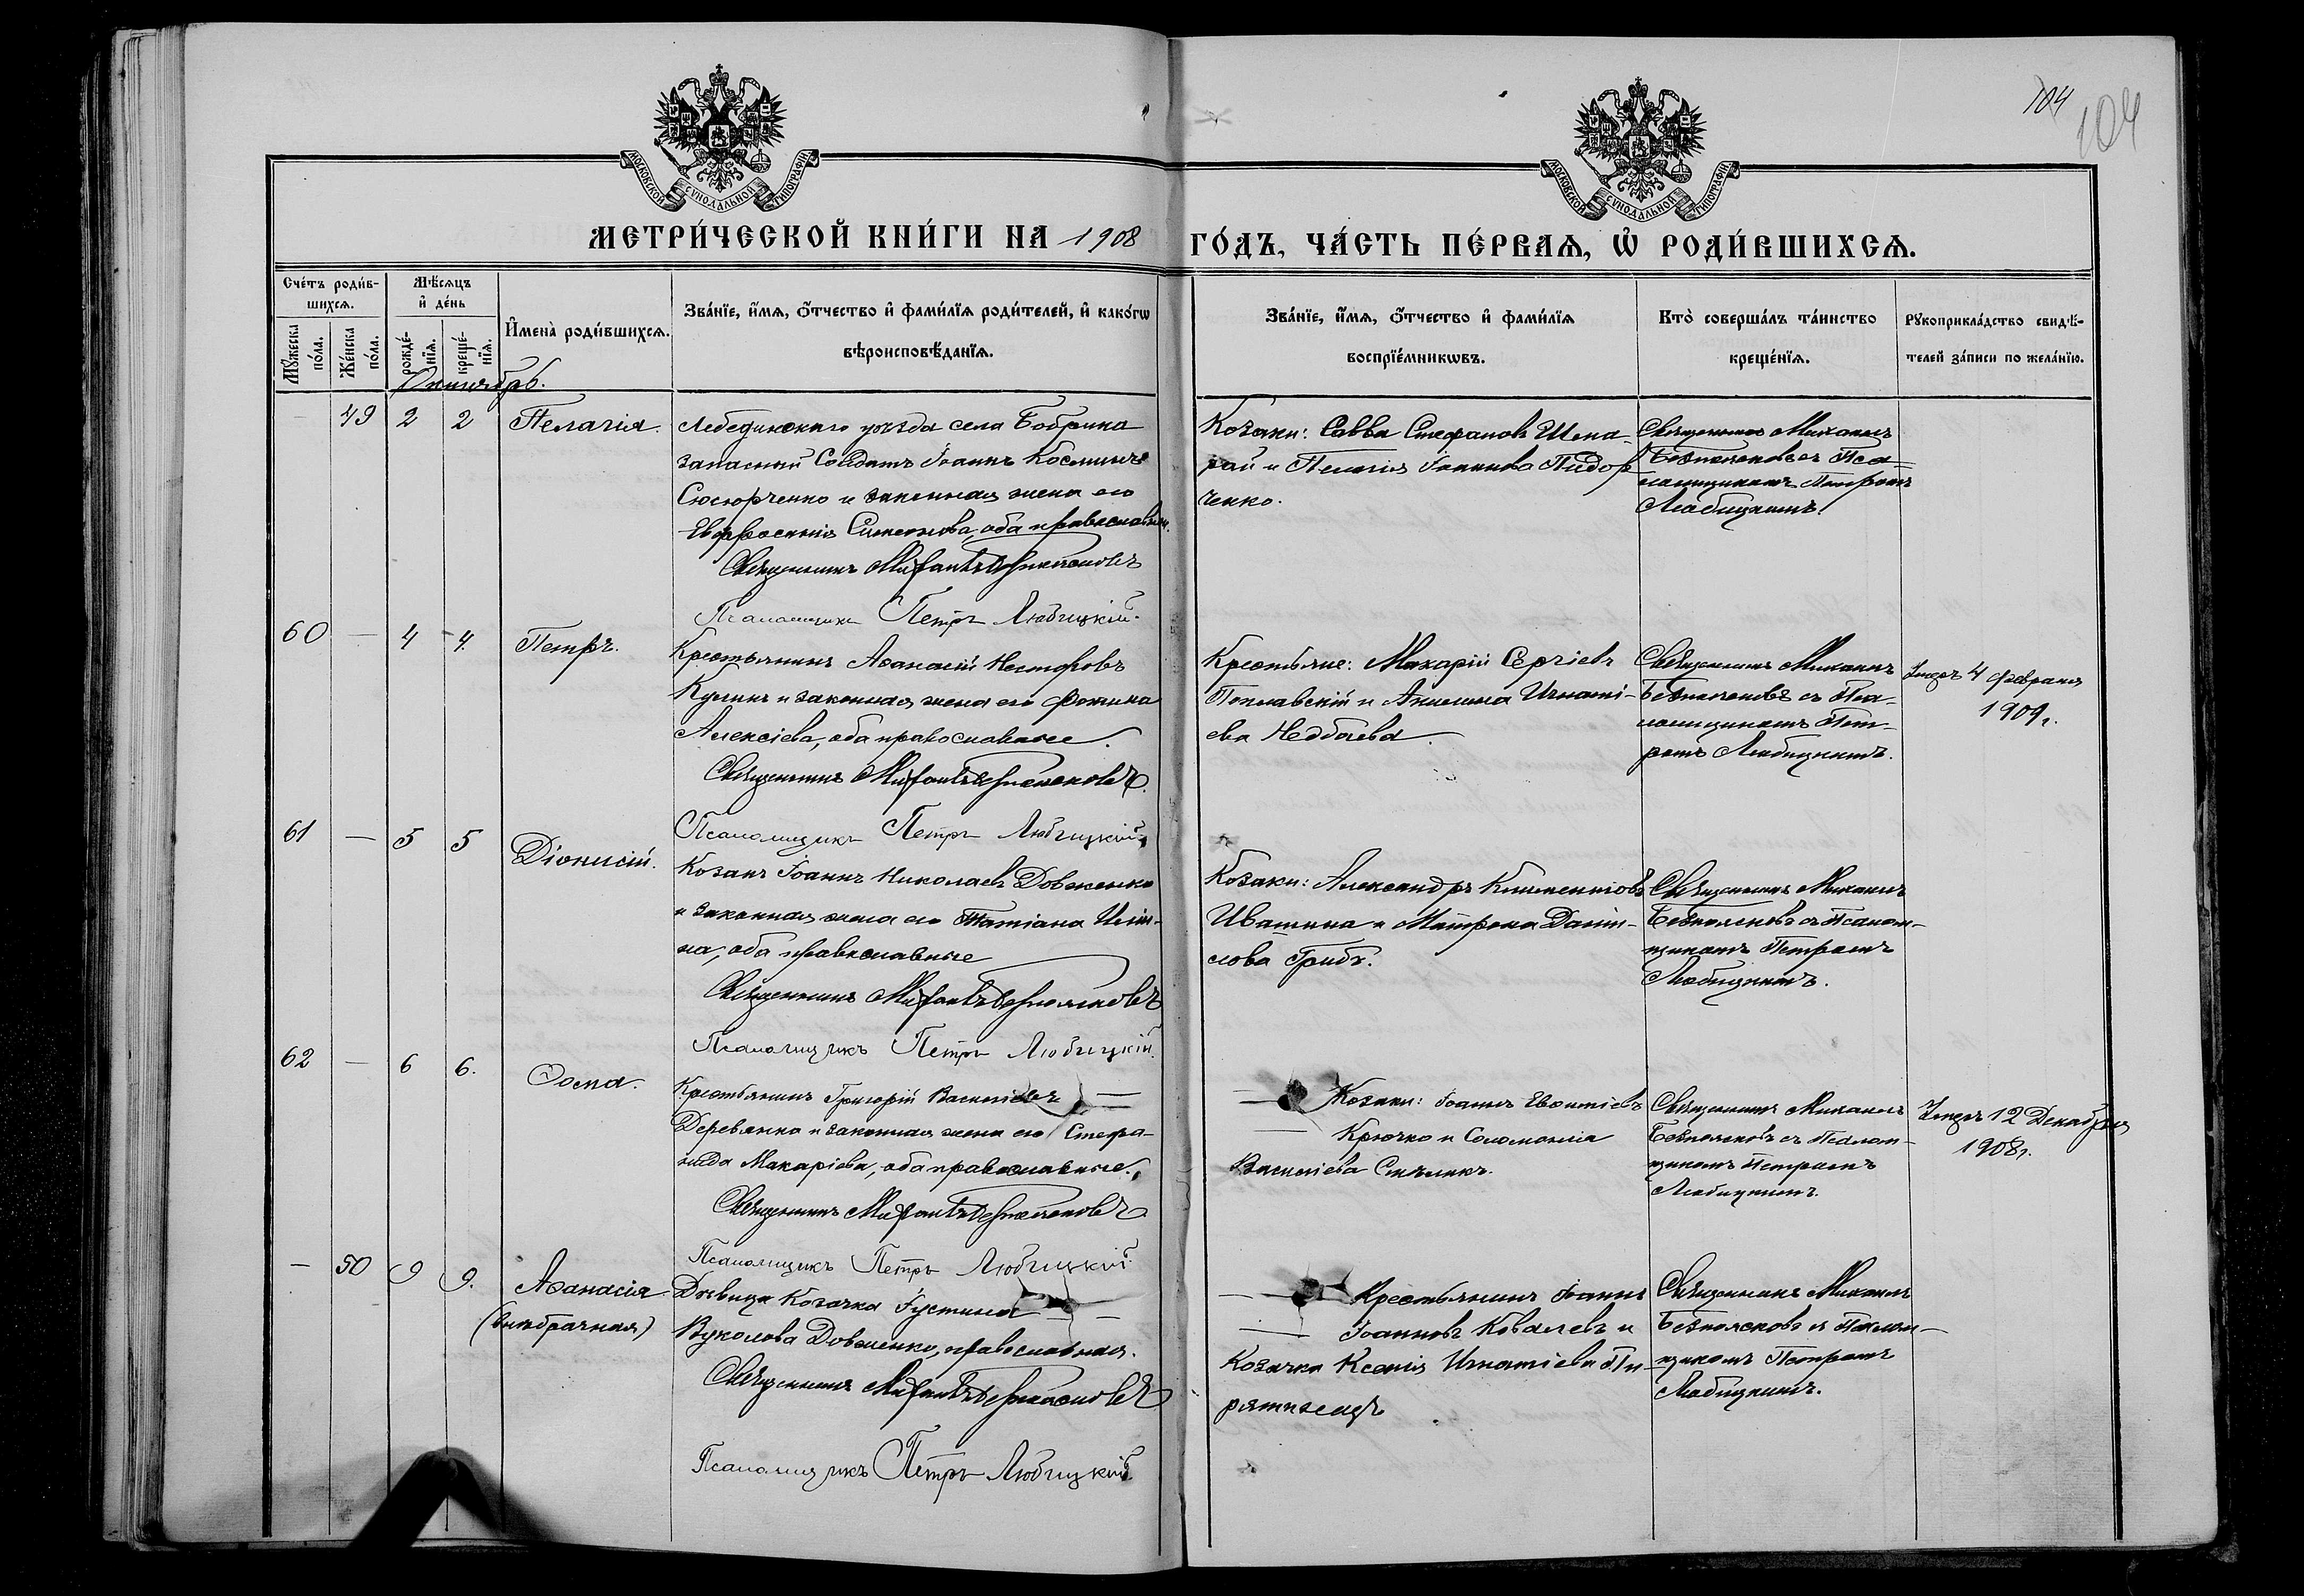 104
104
МОСКОВСКОЙ СѴНОДАЛЬНОЙ ТИПОГРАФІИ
МОСКОВСКОЙ СѴНОДАЛЬНОЙ ТИПОГРАФІИ
МЕТРИ́ЧЕСКОЙ КНИ́ГИ НА 1908
ГО́ДЪ, ЧА́СТЬ ПЕ́РВАѦ, Ѡ҆ РОДИ́ВШИХСѦ.
Сче́тъ роди́в-
шихсѧ.
Мꙋ́жеска по́ла.
Же́нска по́ла.
Мѣ́сѧцъ
и҆ де́нь
рожде́-
нїѧ.
креще́-
нїѧ.
И҆мена̀ роди́вшихсѧ.
Зва́нїе, и҆́мѧ, ѻ҆́тчество и҆ фами́лїѧ роди́телей, и҆ како́гѡ
вѣроисповѣ́данїѧ.
Зва́нїе, и҆́мѧ, ѻ҆́тчество и҆ фами́лїѧ
воспрїе́мникѡвъ.
Кто̀ соверша́лъ та́инство
креще́нїѧ.
Рꙋкоприкла́дство свидѣ́-
телей за́писи по жела́нїю.
Октябрь.
49 2 2 Пелагія.
Лебединскаго уѣзда села Бобрика
запасный Солдатъ Іоаннъ Косминъ
Сюсюрченко и законная жена его
Евфросинія Симеонова, оба православные.
Священникъ Михаилъ Безпоясковъ
Псаломщикъ Петръ Любицкій.
Козаки: Савва Стефановъ Шепа-
рай и Пелагія Іоаннова Пидор
ченко.
Священникъ Михаилъ
Безпоясковъ съ Пса-
ломщикомъ Петромъ
Любицкимъ.
60 — 4 4. Петръ.
Крестьянинъ Аѳанасій Несторовъ
Куликъ и законная жена его Фотина
Алексіева, оба православные.
Священникъ Михаилъ Безпоясковъ
Псаломщикъ Петръ Любицкій.
Крестьяне: Макарій Сергіевъ
Поплавскій и Акилина Игнаті-
ева Недбаева.
Священникъ Михаилъ
Безпоясковъ съ Пса-
ломщикомъ Пет-
ромъ Любицкимъ.
Умеръ 4 февраля
1909 г.
61 — 5 5 Діонисій.
Козакъ Іоаннъ Николаевъ Довженко
и законная жена его Татіана Иліи-
на, оба православные
Священникъ Михаилъ Безпоясковъ
Псаломщикъ Петръ Любицкій.
Козаки: Александръ Климентовъ
Ивашина и Матрона Даніи-
лова Грибъ.
Священникъ Михаилъ
Безпоясковъ съ Псалом-
щикомъ Петромъ
Любицкимъ.
62 — 6 6. Ѳома.
Крестьянинъ Григорій Василіевъ —
Деревянко и законная жена его Стефа-
нида Макаріева, оба православные.
Священникъ Михаилъ Безпоясковъ
Псаломщикъ Петръ Любицкій.
— Козаки: Іоаннъ Евѳиміевъ
— Крючко и Соломонія
Василіева Стѣликъ.
Священникъ Михаилъ
Безпоясковъ съ Псалом-
щикомъ Петромъ
Любицкимъ.
Умеръ 12 Декабря
1908 г.
— 50 9 9. Аѳанасія
(внѣбрачная)
Дѣвица Козачка Іустина —
Вуколова Довженко, православная.
Священникъ Михаилъ Безпоясковъ
Псаломщикъ Петръ Любицкій.
— Крестьянинъ Іоаннъ
— Іоанновъ Ковалевъ и
Козачка Ксенія Игнатіева Пи-
рятинецъ
Священникъ Михаилъ
Безпоясковъ съ Псалом-
щикомъ Петромъ
Любицкимъ.